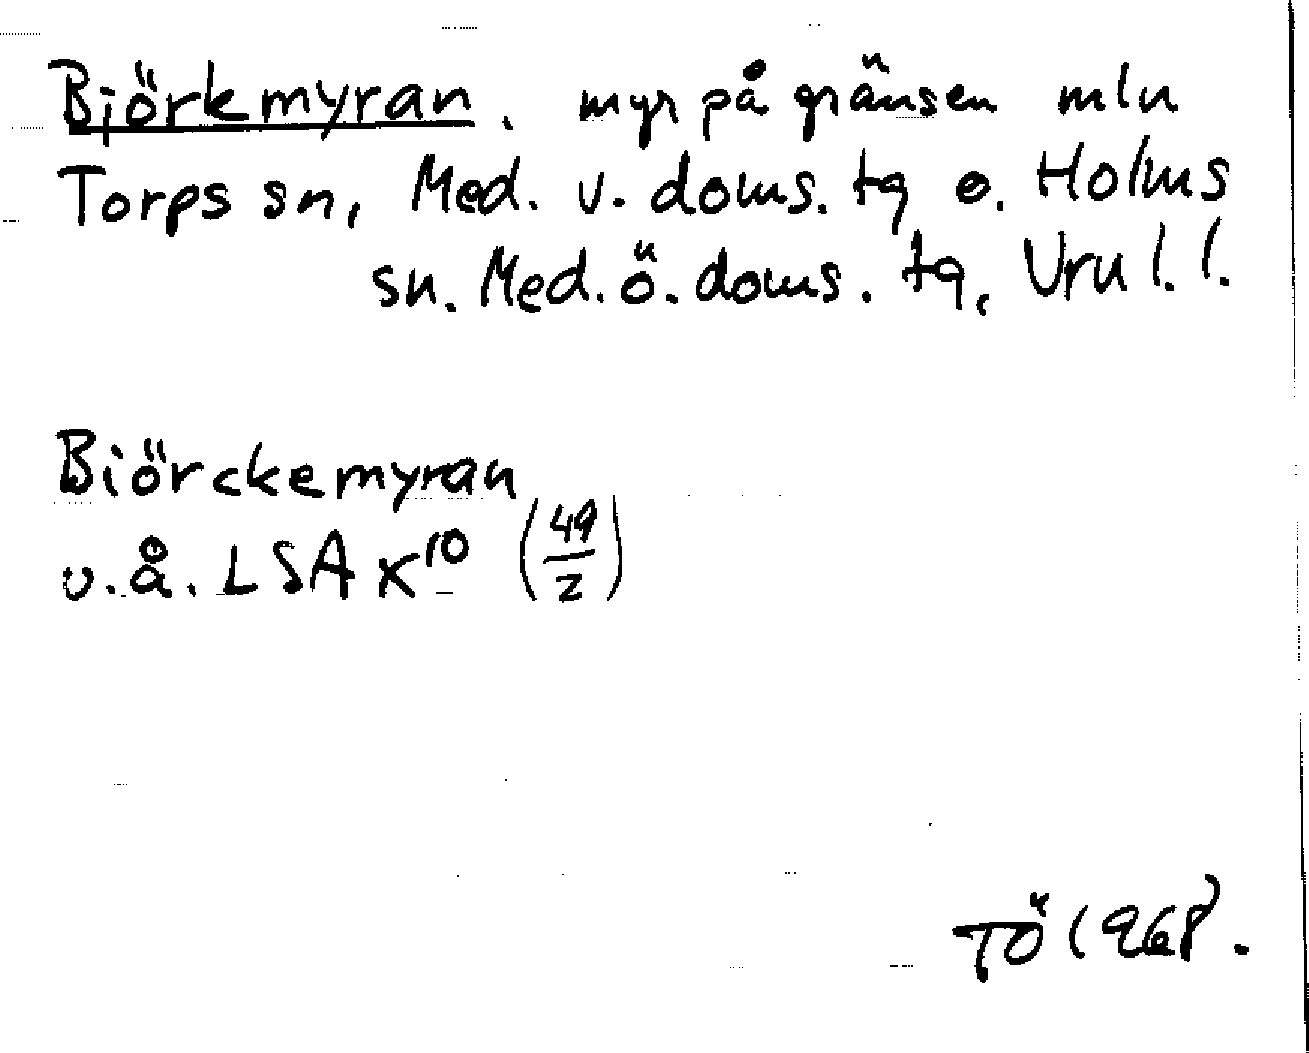 Björkmyran, myr på gränsen mln
Torps sn, Med. v. doms. tg o. Holms
sn. Med. ö. doms. tg, Vrul. l.
Biörckemyran
u.å. LSA K10 (49/2)
TÖ 1968.